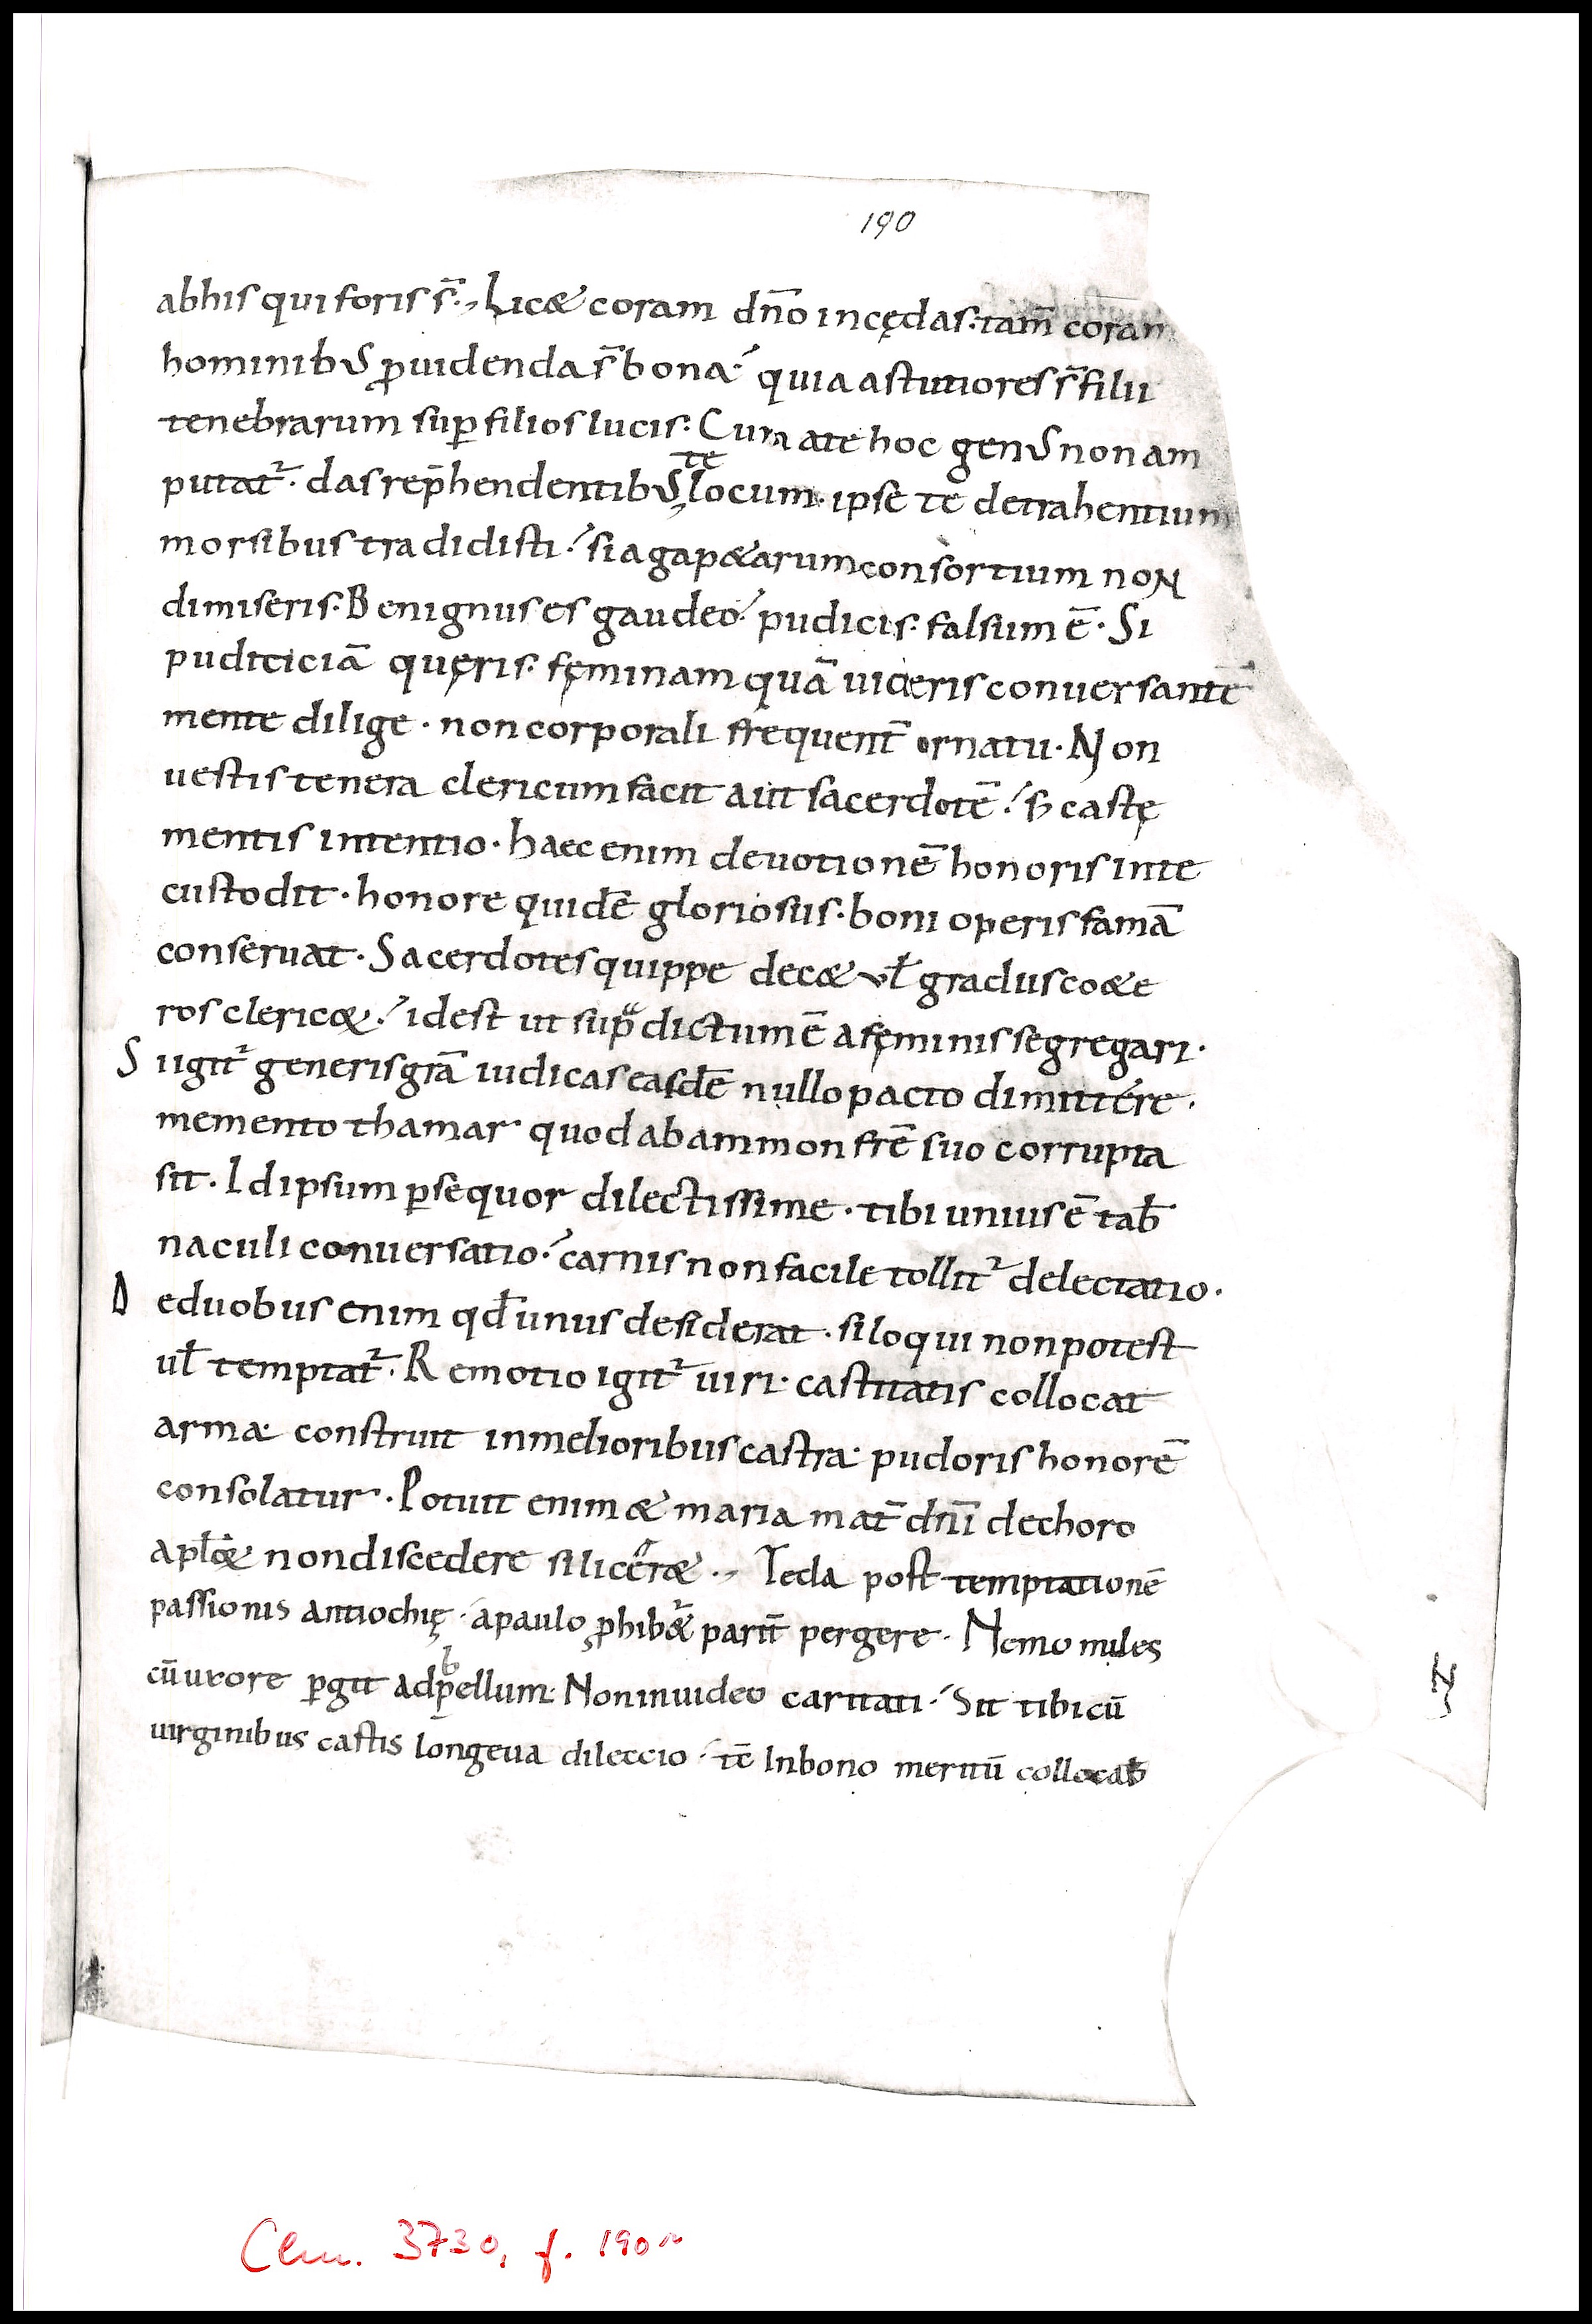 190
abhis qui foris s̄. Licę& coram dn̄o incędas. tam̄ coram
hominibus ꝓuidenda s̄ bona. quia astutiores s̄ filii
tenebrarum suꝑ filios lucis. Cum ate hoc genus non am
putat᷑. das rep̄hendentibus te locum. ipse te detrahentium
morsibus tradidisti. si agap&arum consortium noN
dimiseris. Benignus es gaudeo. pudicis. falsum ē. Si
pudiciciā quęris. fęminam quā uideris conuersantē
mente dilige. non corporali frequent̄ ornatu. Non
uestis tenera clericum facit aut sacerdotē. s; castę
mentis intentio. haec enim deuotionē honoris inte
custodit. honore quidē gloriosus. boni operis famā
conseruat. Sacerdotes quippe dec& ul̄ gradus co&e
ros cleric&. idest ut suprᵃ dictum ē a fęminis segregari.
S iigit᷑ generis grā iudicas easdē nullo pacto dimittére.
memento thamar quod ab ammon fr̄e suo corrupta
sit. Id ipsum ꝑsequor dilectissime. tibi unius ē tab̄
naculi conuersatio. carnis non facile tollit᷑ delectatio.
D eduobus enim qd̄ unus desiderat. si loqui non potest
ul̄ temptat᷑. Remotio igit᷑ uiri. castitatis collocat
arma construit in melioribus castra. pudoris honorē
consolatur. Potuit enim & maria mat̄ dn̄i dechoro
apl̄o& non discedere si licer&. Tecla post temptationē
passionis antiochię. apaulo ꝓhib&᷑ parit̄ pergere. Nemo miles
cū uxore ꝑgit ad p̄bellum. Non inuideo caritati. Sit tibi cū
uirginibus castis longeua dileccio. tē In bono meritū collocab̄
Clm. 3730, f. 190r